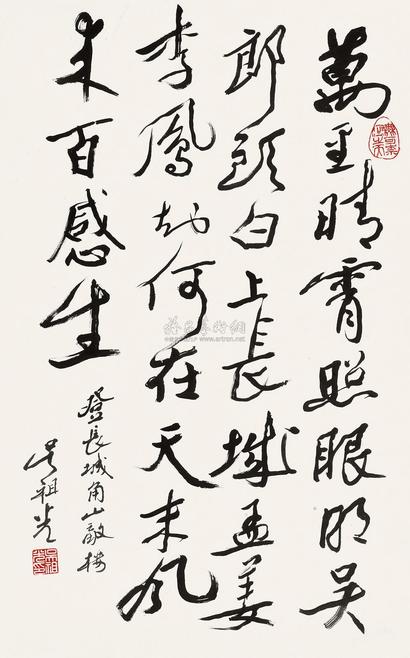 萬里晴霄照眼明吴
郎頭白上長城孟姜
李鳳知何在天末風
来百感生
登長城角山敵樓
吴祖光
雅昌藝術網
www.artron.net